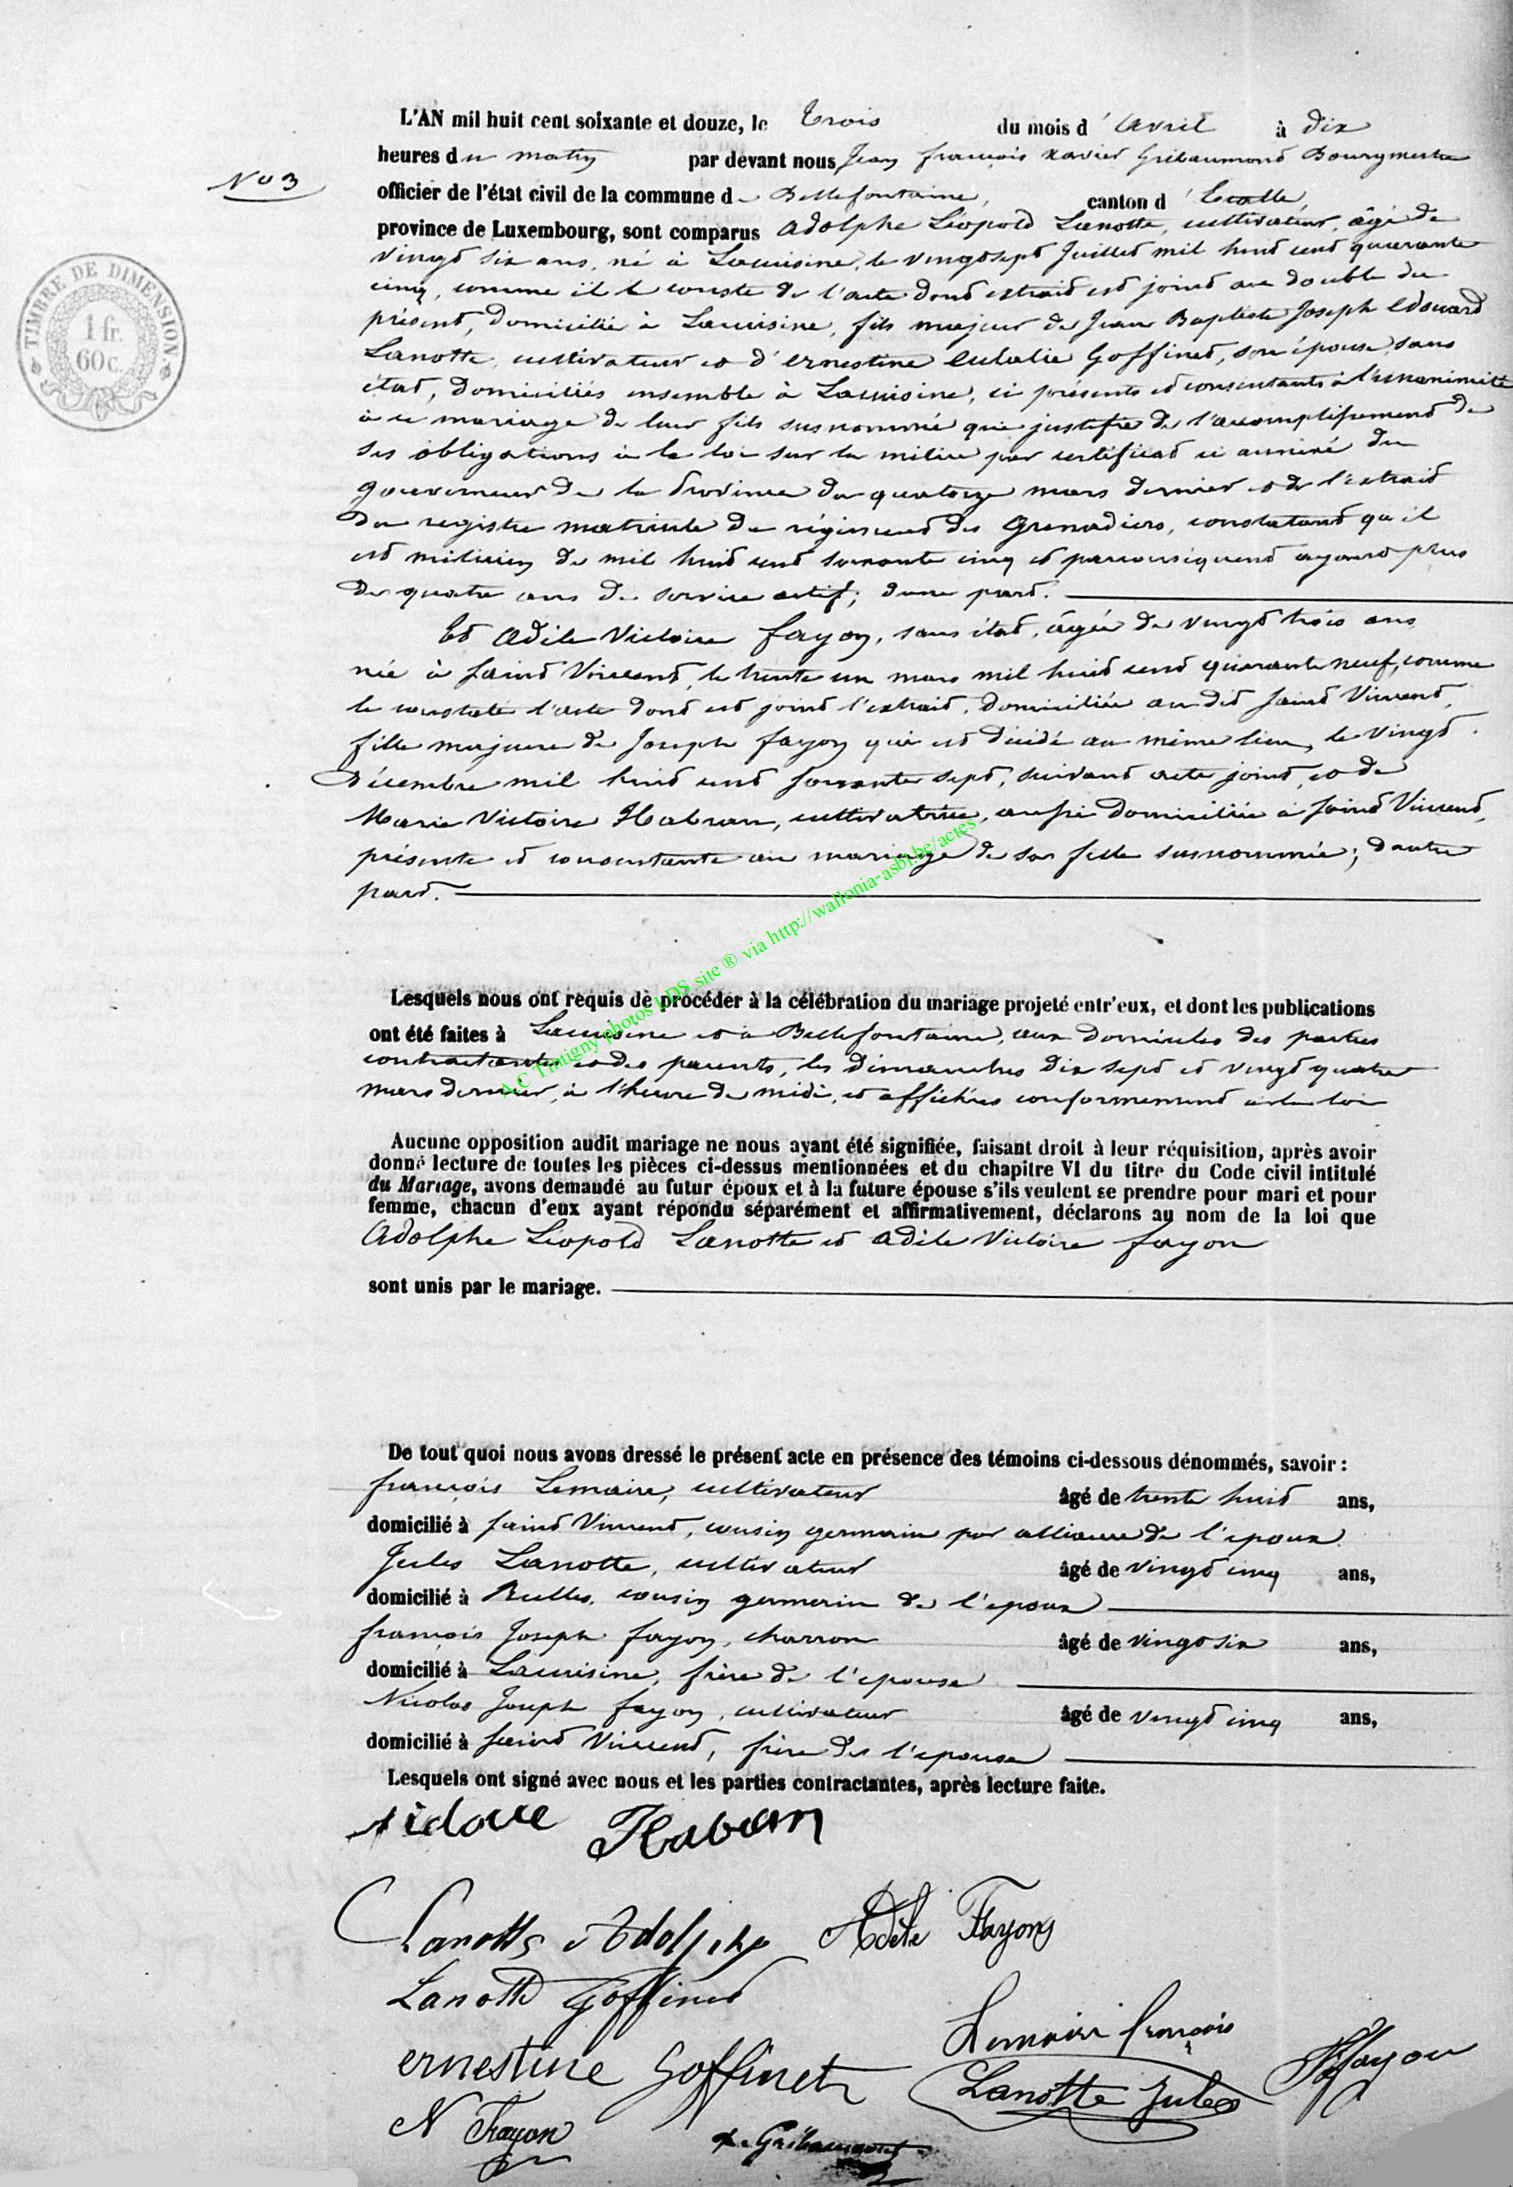 L'AN mil huit cent soixante et douze, le trois du mois d'avril à dix
heures du matin par devant nous Jean françois xavier Gribaumont Bourgmestre
N° 3
officier de l'état civil de la commune de Bellefontaine, canton d'Etalle,
province de Luxembourg, sont comparus Adolphe Léopold Lanotte, cultivateur, âgé de
vingt six ans, né à Lacuisine, le vingt sept Juillet mil huit cent quarante
cinq, comme il conste de l'acte dont extrait est joint au double du
présent, domicilié à Lacuisine, fils majeur de Jean Baptiste Joseph Edouard
Lanotte, cultivateur et d'ernestine Eulalie Goffinet, son épouse, sans
état, domiciliés ensemble à Lacuisine, ci présents et consentants à l'unanimité
à ce mariage de leur fils susnommé qui justifie de l'accomplissement de
ses obligations à la loi sur la milice par certificat ci annexé du
gouverneur de la Province du quatorze mars dernier et de l'extrait
du registre matricule du régiment des Grenadiers, constatant qu'il
est milicien de mil huit cent soixante cinq et par conséquent ayant plus
de quatre ans de service actif; d'une part.
Et Adile Victoire fayon, sans état, âgée de vingt trois ans
née à Saint Vincent, le trente un mars mil huit cent quarante neuf, comme
le constate l'acte dont est joint l'extrait, domiciliée au dit Saint Vincent,
fille majeure de Joseph fayon qui est décédé au même lieu, le vingt
Décembre mil huit cent soixante sept, suivant acte joint, et de
Marie Victoire Habran, cultivatrice, aussi domiciliée à Saint Vincent,
présente et consentante au mariage de sa fille susnommée; d'autre
part.
A.C Tintigny photos LDS site ® via http://wallonia-asbl.be/actes
Lesquels nous ont requis de procéder à la célébration du mariage projeté entr'eux, et dont les publications
ont été faites à Lacuisine et à Bellefontaine, aux domiciles des parties
contractantes et des parents, les dimanches dix sept et vingt quatre
mars dernier, à l'heure de midi, et affichées conformément à la loi
Aucune opposition audit mariage ne nous ayant été signifiée, faisant droit à leur réquisition, après avoir
donné lecture de toutes les pièces ci-dessus mentionnées et du chapitre VI du titre du Code civil intitulé
du Mariage, avons demandé au futur époux et à la future épouse s'ils veulent se prendre pour mari et pour
femme, chacun d'eux ayant répondu séparément et affirmativement, déclarons au nom de la loi que
Adolphe Léopold Lanotte et Adile Victoire fayon
sont unis par le mariage.
De tout quoi nous avons dressé le présent acte en présence des témoins ci-dessous dénommés, savoir :
françois Lemaire, cultivateur âgé de trente huit ans,
domicilié à Saint Vincent, cousin germain par alliance de l'époux
Jules Lanotte, cultivateur âgé de vingt cinq ans,
domicilié à Rulles, cousin germain de l'époux
françois Joseph fayon, charron âgé de vingt six ans,
domicilié à Lacuisine, frère de l'épouse
Nicolas Joseph fayon, cultivateur âgé de vingt cinq ans,
domicilié à Saint Vincent, frère de l'épouse
Lesquels ont signé avec nous et les parties contractantes, après lecture faite.
Habran
Lanotte Adolphe Adèle Fayon
Lanotte Goffinet
Lemaire françois
ernestine Goffinet Lanotte Jules Fayon
N Fayon
X. Gribaumont
TIMBRE DE DIMENSION.
1 fr.
60 c.